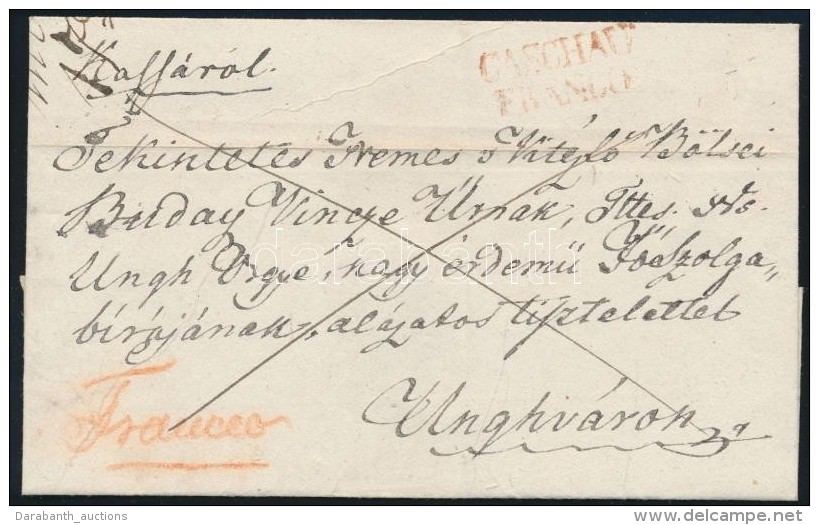 Kassáról.
CASCHAU
FRANCO
Tekintetes Nemes s Vitézlő Bölsei
Buday Vincze Úrnak, Tttes. Nds.
Ungh Vrgye, nagy érdemü FőSzolga„
bírájának, alázatos tisztelettel
Francco
Unghváron
darabanth
Darabanth_auctions
www.delcampe.net